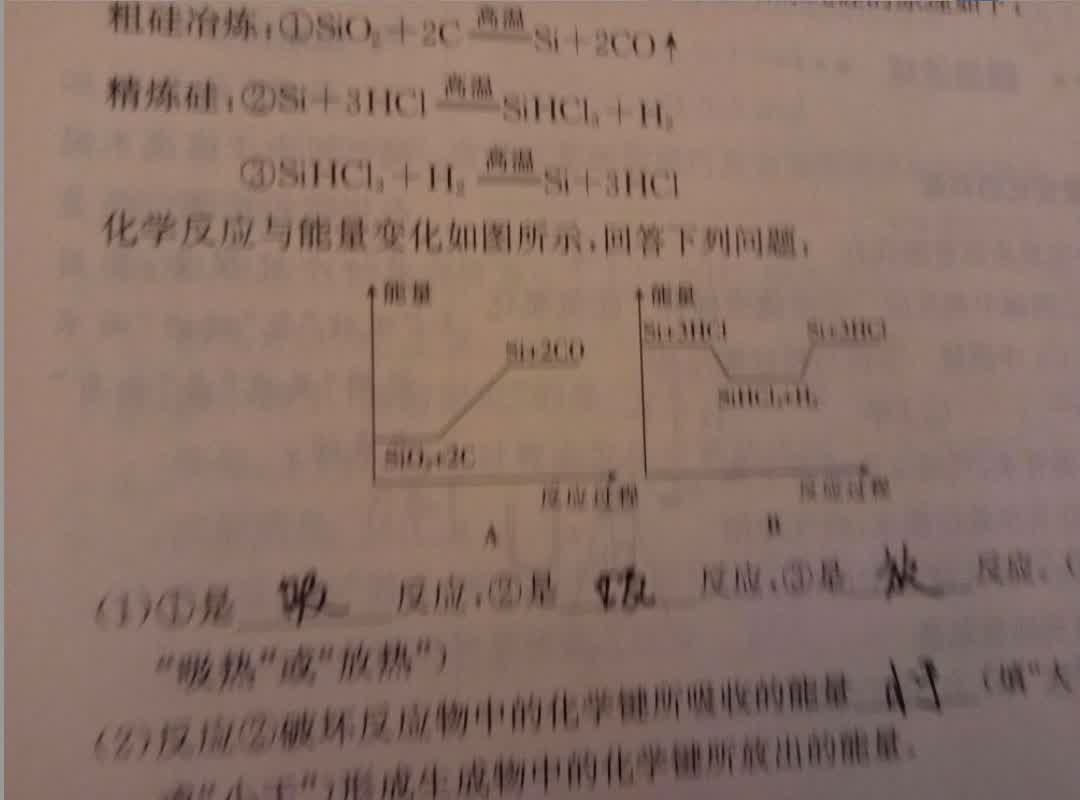 粗硅冶炼:①SiO₂+2C 高温 Si+2CO↑
精炼硅:②Si+3HCl 高温 SiHCl₃+H₂
③SiHCl₃+H₂ 高温 Si+3HCl
化学反应与能量变化如图所示,回答下列问题:
能量 能量
Si+3HCl Si+3HCl
Si+2CO
SiHCl₃+H₂
SiO₂+2C
反应过程 反应过程
A B
(1)①是 吸 反应,②是 吸 反应,③是 放 反应。(
“吸热”或“放热”)
(2)反应②破坏反应物中的化学键所吸收的能量 小于 (填“大
或“小于”)形成生成物中的化学键所放出的能量。